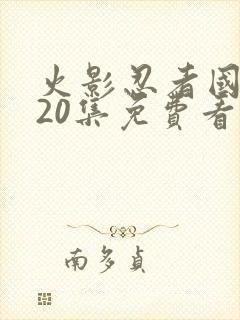 火影忍者國
20集免費看
南多貞